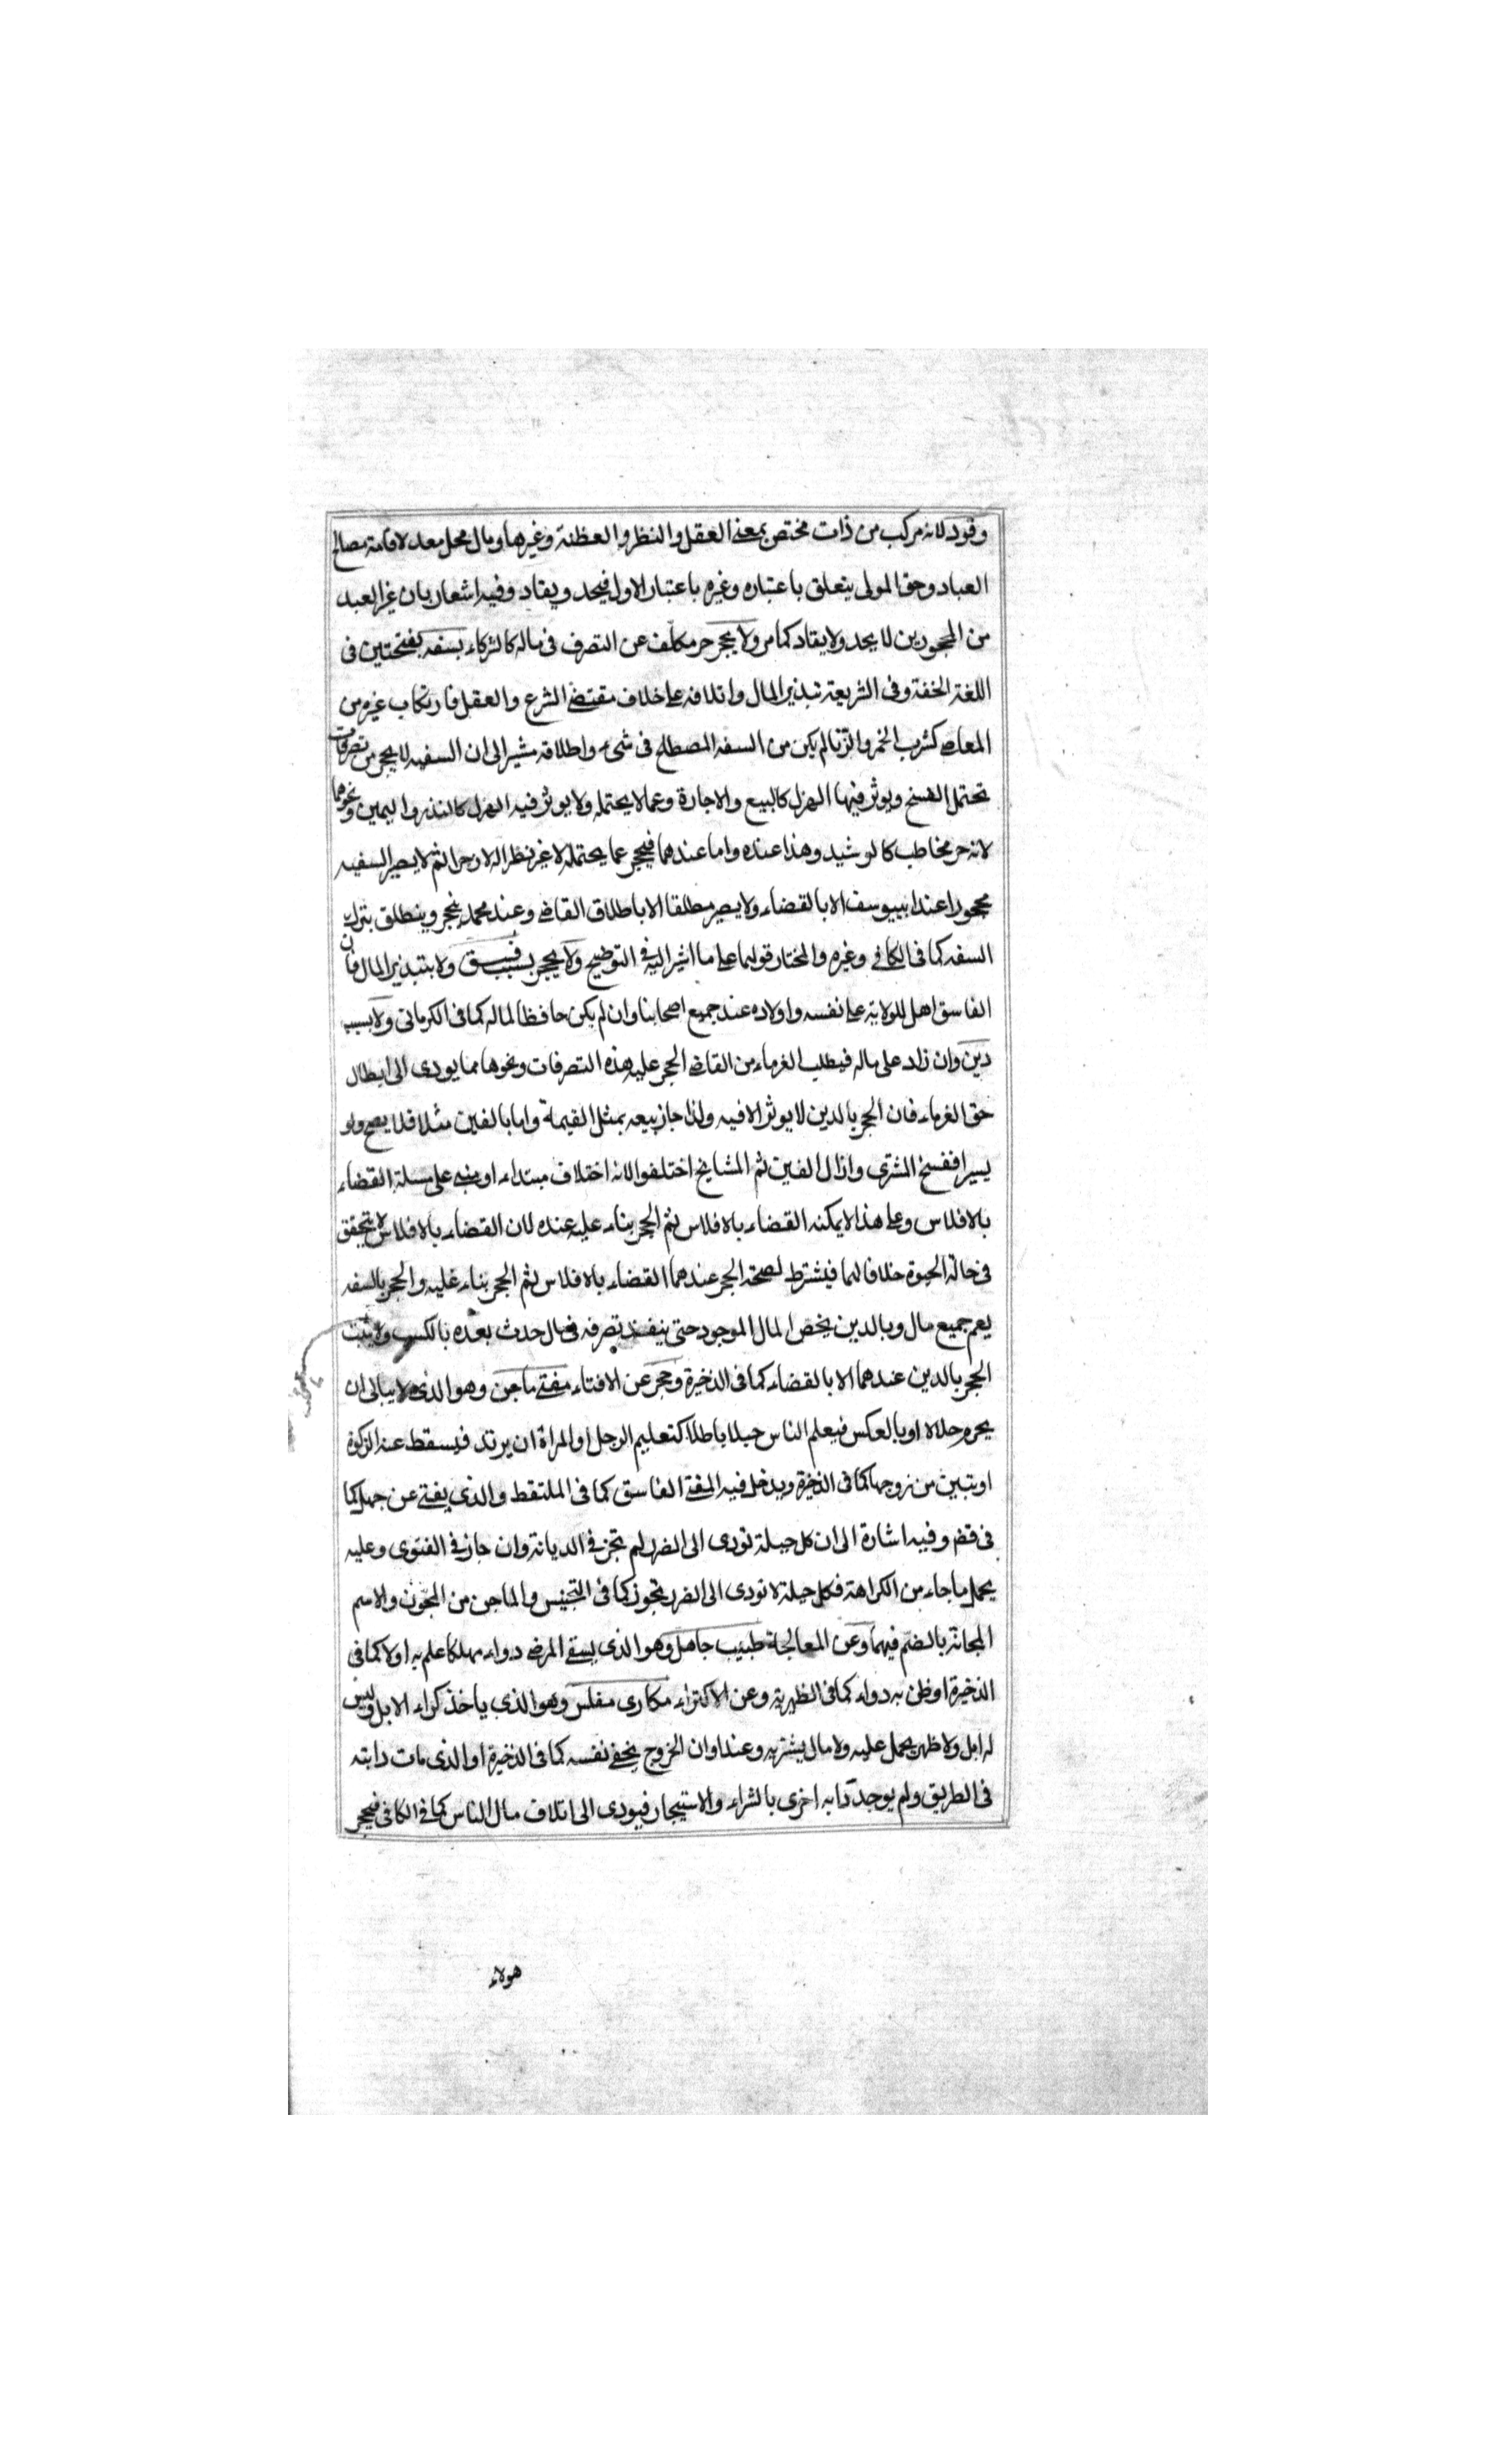 وقود لانه مركب من ذات مختص بمعنى العقل والنظر والعظنة وغيرها ومال محل معد لاقامة مصالح
العباد وحق المولى يتعلق باعتباره وغيره باعتبار الاول فيحد ويقاد وفيه اشعار بان غير العبد
من المحجورين لا يحد ولا يقاد كما مر ولا يحجر حر مكلف عن التصرف فى ماله كالشركاء بسفه بفتحتين فى
اللغة الخفة وفى الشريعة تبذير المال واتلافه على خلاف مقتضى الشرع والعقل فارتكاب غيره من
المعاصى كشرب الخمر والزنا لم يكن من السفه المصطلح فى شىء واطلاقه مشير الى ان السفيه لا يحجر من تصرفات
تحتمل الفسخ ويوثر فيها الهزل كالبيع والاجارة وعما لا يحتمله ولا يوثر فيه الهزل كالنذر واليمين ونحوهما
لانه حر مخاطب كالرشيد وهذا عنده واما عندهما فيحجر عما يحتمله لا غير نظرا له لا زجرا ثم لا يصير السفيه
محجورا عند ابييوسف الا بالقضاء ولا يصير مطلقا الا باطلاق القاضى وعند محمد ينحجر وينطلق بترك
السفه كما فى الكافى وغيره والمختار قولهما على ما اشير اليه فى التوضيح ولا يحجر بسبب فسق ولا بتبذير المال فان
الفاسق اهل للولاية على نفسه واولاده عند جميع اصحابنا وان لم يكن حافظا لماله كما فى الكرمانى ولا بسبب
دين وان زاد على ماله فيطلب الغرماء من القاضى الحجر عليه هذه التصرفات ونحوها مما يودى الى ابطال
حق الغرماء فان الحجر بالدين لا يوثر الا فيه ولذا جاز بيعه بمثل القيمة واما بالغبن مثلا فلا يصح ولو
يسيرا ففسخ المشترى وازال الغبن ثم المشايخ اختلفوا لانه اختلاف مبتداء او مبنى على مسلة القضاء
بالافلاس وعلى هذا لا يمكنه القضاء بالافلاس ثم الحجر بناء عليه عنده لان القضاء بالافلاس لا يتحقق
فى حالة الحيوة خلافا لهما فيشترط لصحة الحجر عندهما القضاء بالافلاس ثم الحجر بناء عليه والحجر بالسفه
يعم جميع مال وبالدين يخص المال الموجود حتى ينفذ تصرفه فى مال حدث بعده بالكسب ولا يثبت
الحجر بالدين عندهما الا بالقضاء كما فى الذخيرة وحجر عن الافتاء مفتى ماجن وهو الذى لا يبالى ان
يحرم حلالا او بالعكس فيعلم الناس حيلا باطلا كتعليم الرجل او المراة ان يرتد فيسقط عنه الزكوة
او تبين من زوجها كما فى الذخيرة ويدخل فيه المفتى الفاسق كما فى الملتقط والذى يفتى عن جهل كما
فى قضى وفيه اشارة الى ان كل حيلة تودى الى الضرر لم تجز فى الديانة وان جاز فى الفتوى وعليه
يحمل ما جاء من الكراهة فكل حيلة لا تودى الى الضرر تجوز كما فى التجنيس والماجن من المجون والاسم
المجانة بالضم فيهما وعن المعالجة طبيب جاهل وهو الذى يسقى المرضى دواء مهلكا علم به او لا كما فى
الذخيرة او ظن به دواء كما فى الظهيرية وعن الاكتراء مكارى مفلس وهو الذى ياخذ كراء الابل وليس
له ابل ولا ظهر يحمل عليه ولا مال يشتريه وعند اوان الخروج يخفى نفسه كما فى الذخيرة او الذى مات دابته
فى الطريق ولم يوجد دابة اخرى بالشراء والاستيجار فيودى الى اتلاف مال الناس كما فى الكافى فيحجر
هولاء